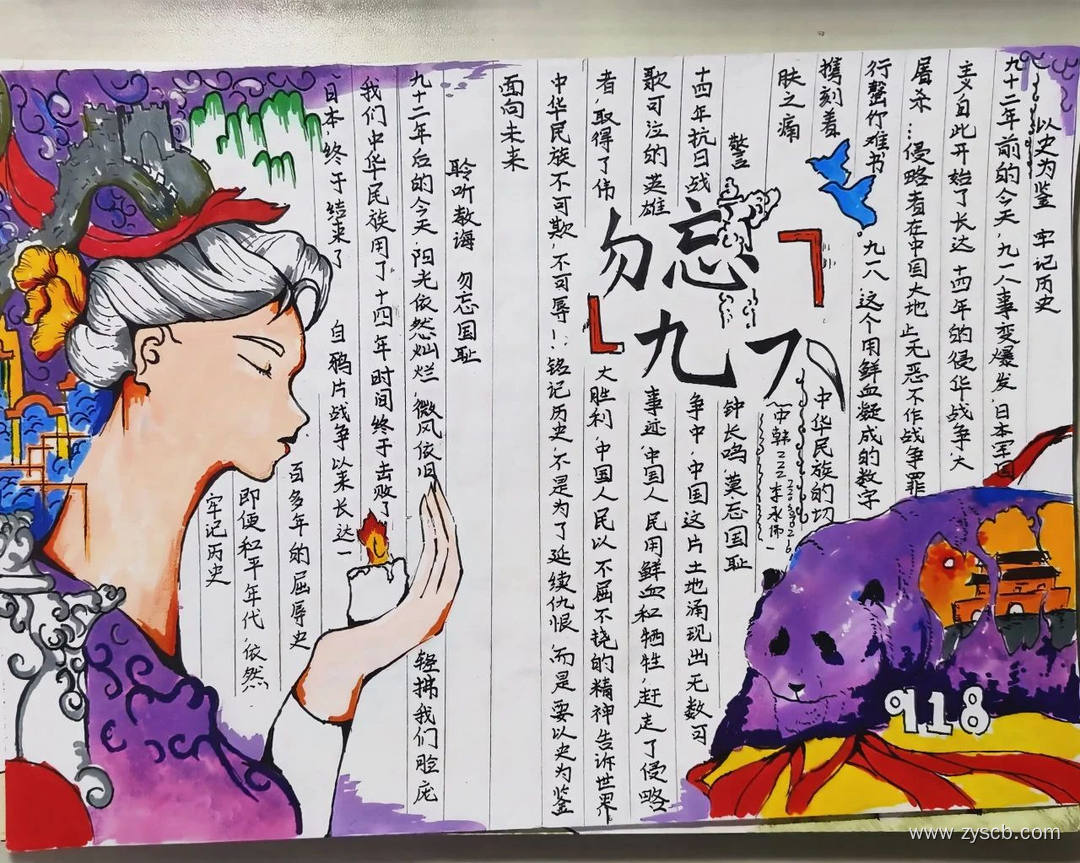 以史为鉴 牢记历史
九十二年前的今天，九一八事变爆发，日本军国
主义自此开始了长达十四年的侵华战争，大
屠杀…侵略者在中国大地上无恶不作战争罪
行罄竹难书
九一八，这个用鲜血凝成的数字
携刻着
中华民族的切
肤之痛
勿忘
九一八
警
钟长鸣，莫忘国耻
十四年抗日战
争中，中国这片土地涌现出无数可
歌可泣的英雄
事迹，中国人民用鲜血和牺牲，赶走了侵略
者，取得了伟
大胜利，中国人民以不屈不挠的精神告诉世界
中华民族不可欺，不可辱！：铭记历史，不是为了延续仇恨，而是要以史为鉴
面向未来
聆听教诲 勿忘国耻
九十二年后的今天，阳光依然灿烂，微风依旧
轻拂我们脸庞
我们中华民族用了十四年时间终于击败了
日本，终于结束了
自鸦片战争以来长达一
百多年的屈辱史
即便和平年代，依然
牢记历史
918
www.zyscb.com